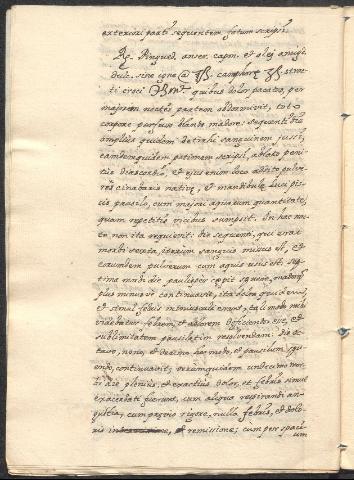 exteriori parti sequentem fotum scripsi.
Rp. Pingued. anser. capon. et olei amigd.
dulc. sine igne @ ʒβ. camphoræ ʒβ.
ti croci quibus dolor pacatus, per
majorem noctis partem obdormivit, toto
corpore persum blando madore: sequenti die
amplius quidem detrahi sanguinem jussi,
eamdemquidem ptisanem scripsi, ablato peni-
tus diascordio, et ejus enim loco addito pulve-
res cinabaris nativæ, et mandibulæ lucii pis-
cis pauxilo, cum majori aquarum quantitate,
quam repetitis vicibus sumpsit. In hac noc-
te non ita requievit: die sequenti, qui erat
morbi sexta, iterum sanguis missus est, et
eorumdem pulverum cum aquis usus est: sep-
tima morbi die paulisper cœpit
plus minusve continuavit, ita dolor
et simul febris minuscula erant, tali modo mihi
videbatur febrem, et dolorem deficientes esse, et
sublimitatem paulatim resolvendam: die oc-
tavo, nono, et decimo hoc modo, et pausilum
endo, continuavit; verumquidem undecimo mor-
bi die plenius, et exactius dolor, et febris simul
exacerbati fuerunt, cum aliqua respirandi an-
gustia, cum parvo rigore, nulla febris, et dolo-
ris et remissione; cum per spaci-
um